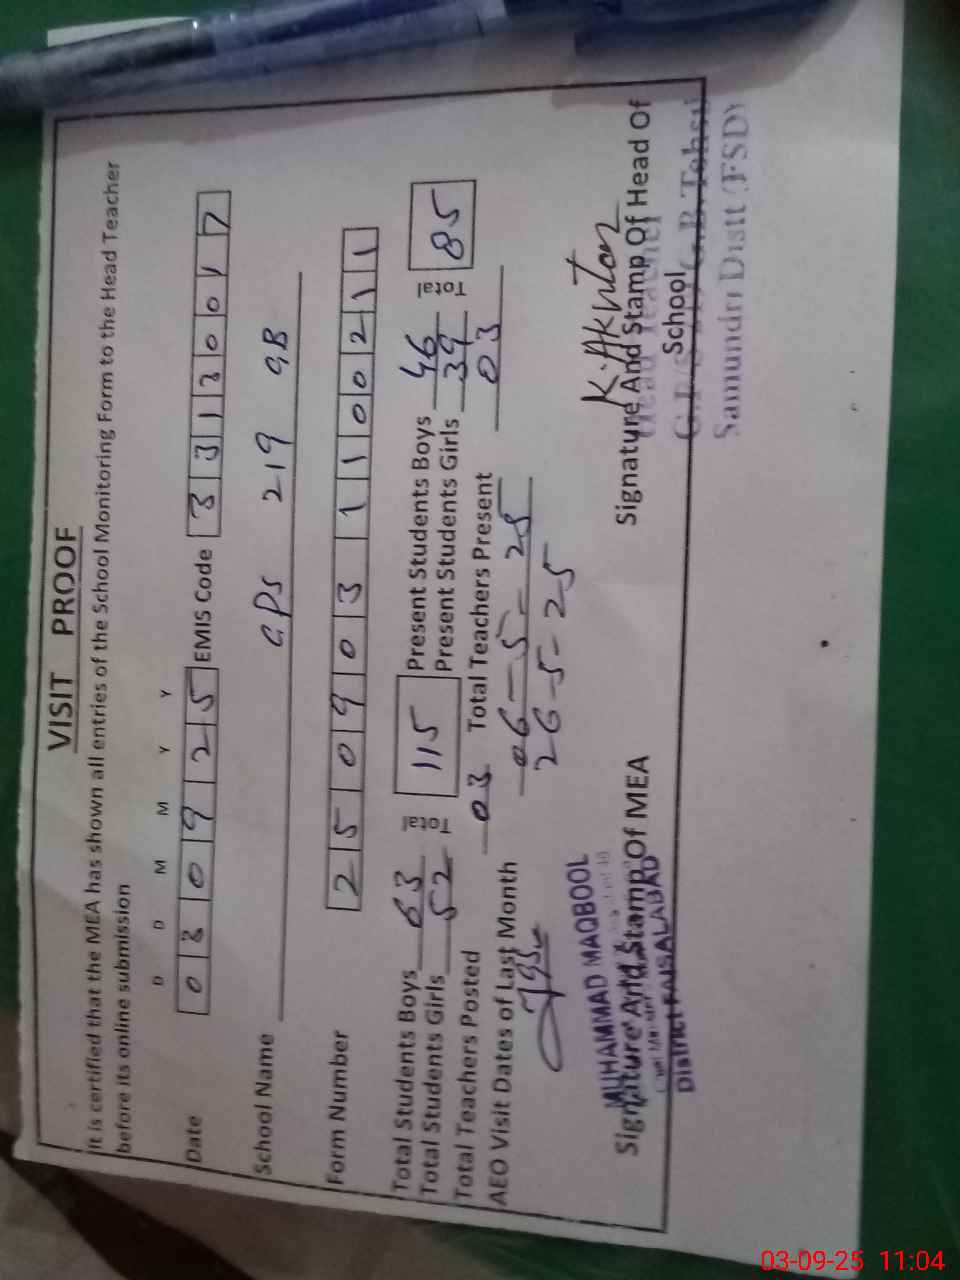 VISIT PROOF
it is certified that the MEA has shown all entries of the School Monitoring Form to the Head Teacher
before its online submission
D D M M Y Y
Date 03 09 25 EMIS Code 33130017
School Name GPS 219 GB
Form Number 250903110021
Total Students Boys 63 Total 115 Present Students Boys 46 Total 85
Total Students Girls 52 Present Students Girls 39
Total Teachers Posted 03 Total Teachers Present 03
AEO Visit Dates of Last Month 06-5-25
26-5-25
K.Akhtar
MUHAMMAD MAQBOOL
Signature And Stamp Of MEA Signature And Stamp Of Head Of
School
District FAISALABAD
Head Teacher
G.B. Tehsil
Samundri Distt (FSD)
03-09-25 11:04